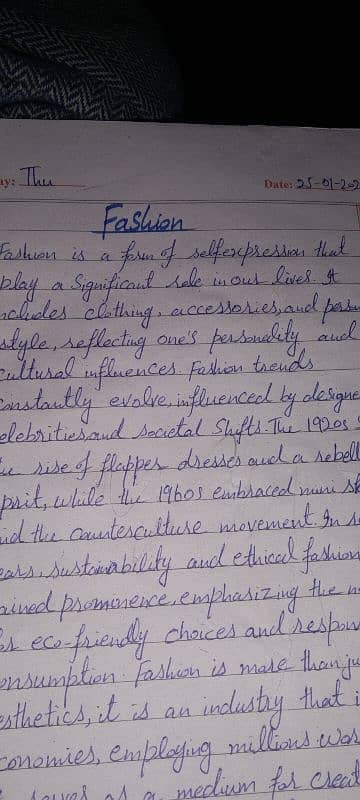 ay: Thu Date: 25-01-202
Fashion
Fashion is a form of selfexpression that
play a Significant role in our lives. It
ncludes clothing, accessories, and person
style, reflecting one's personality and
cultural influences. Fashion trends
constantly evolve, influenced by designe
elebrities, and societal Shifts. The 1920s s
he rise of flapper dresses and a rebell
prit, while the 1960s embraced mini sk
nd the counterculture movement. In r
ears, sustainability and ethical fashion
ained prominence, emphasizing the n
or eco-friendly choices and respon
onsumption. Fashion is more than ju
esthetics, it is an industry that i
conomies, employing millions wor
serves as a medium for creat